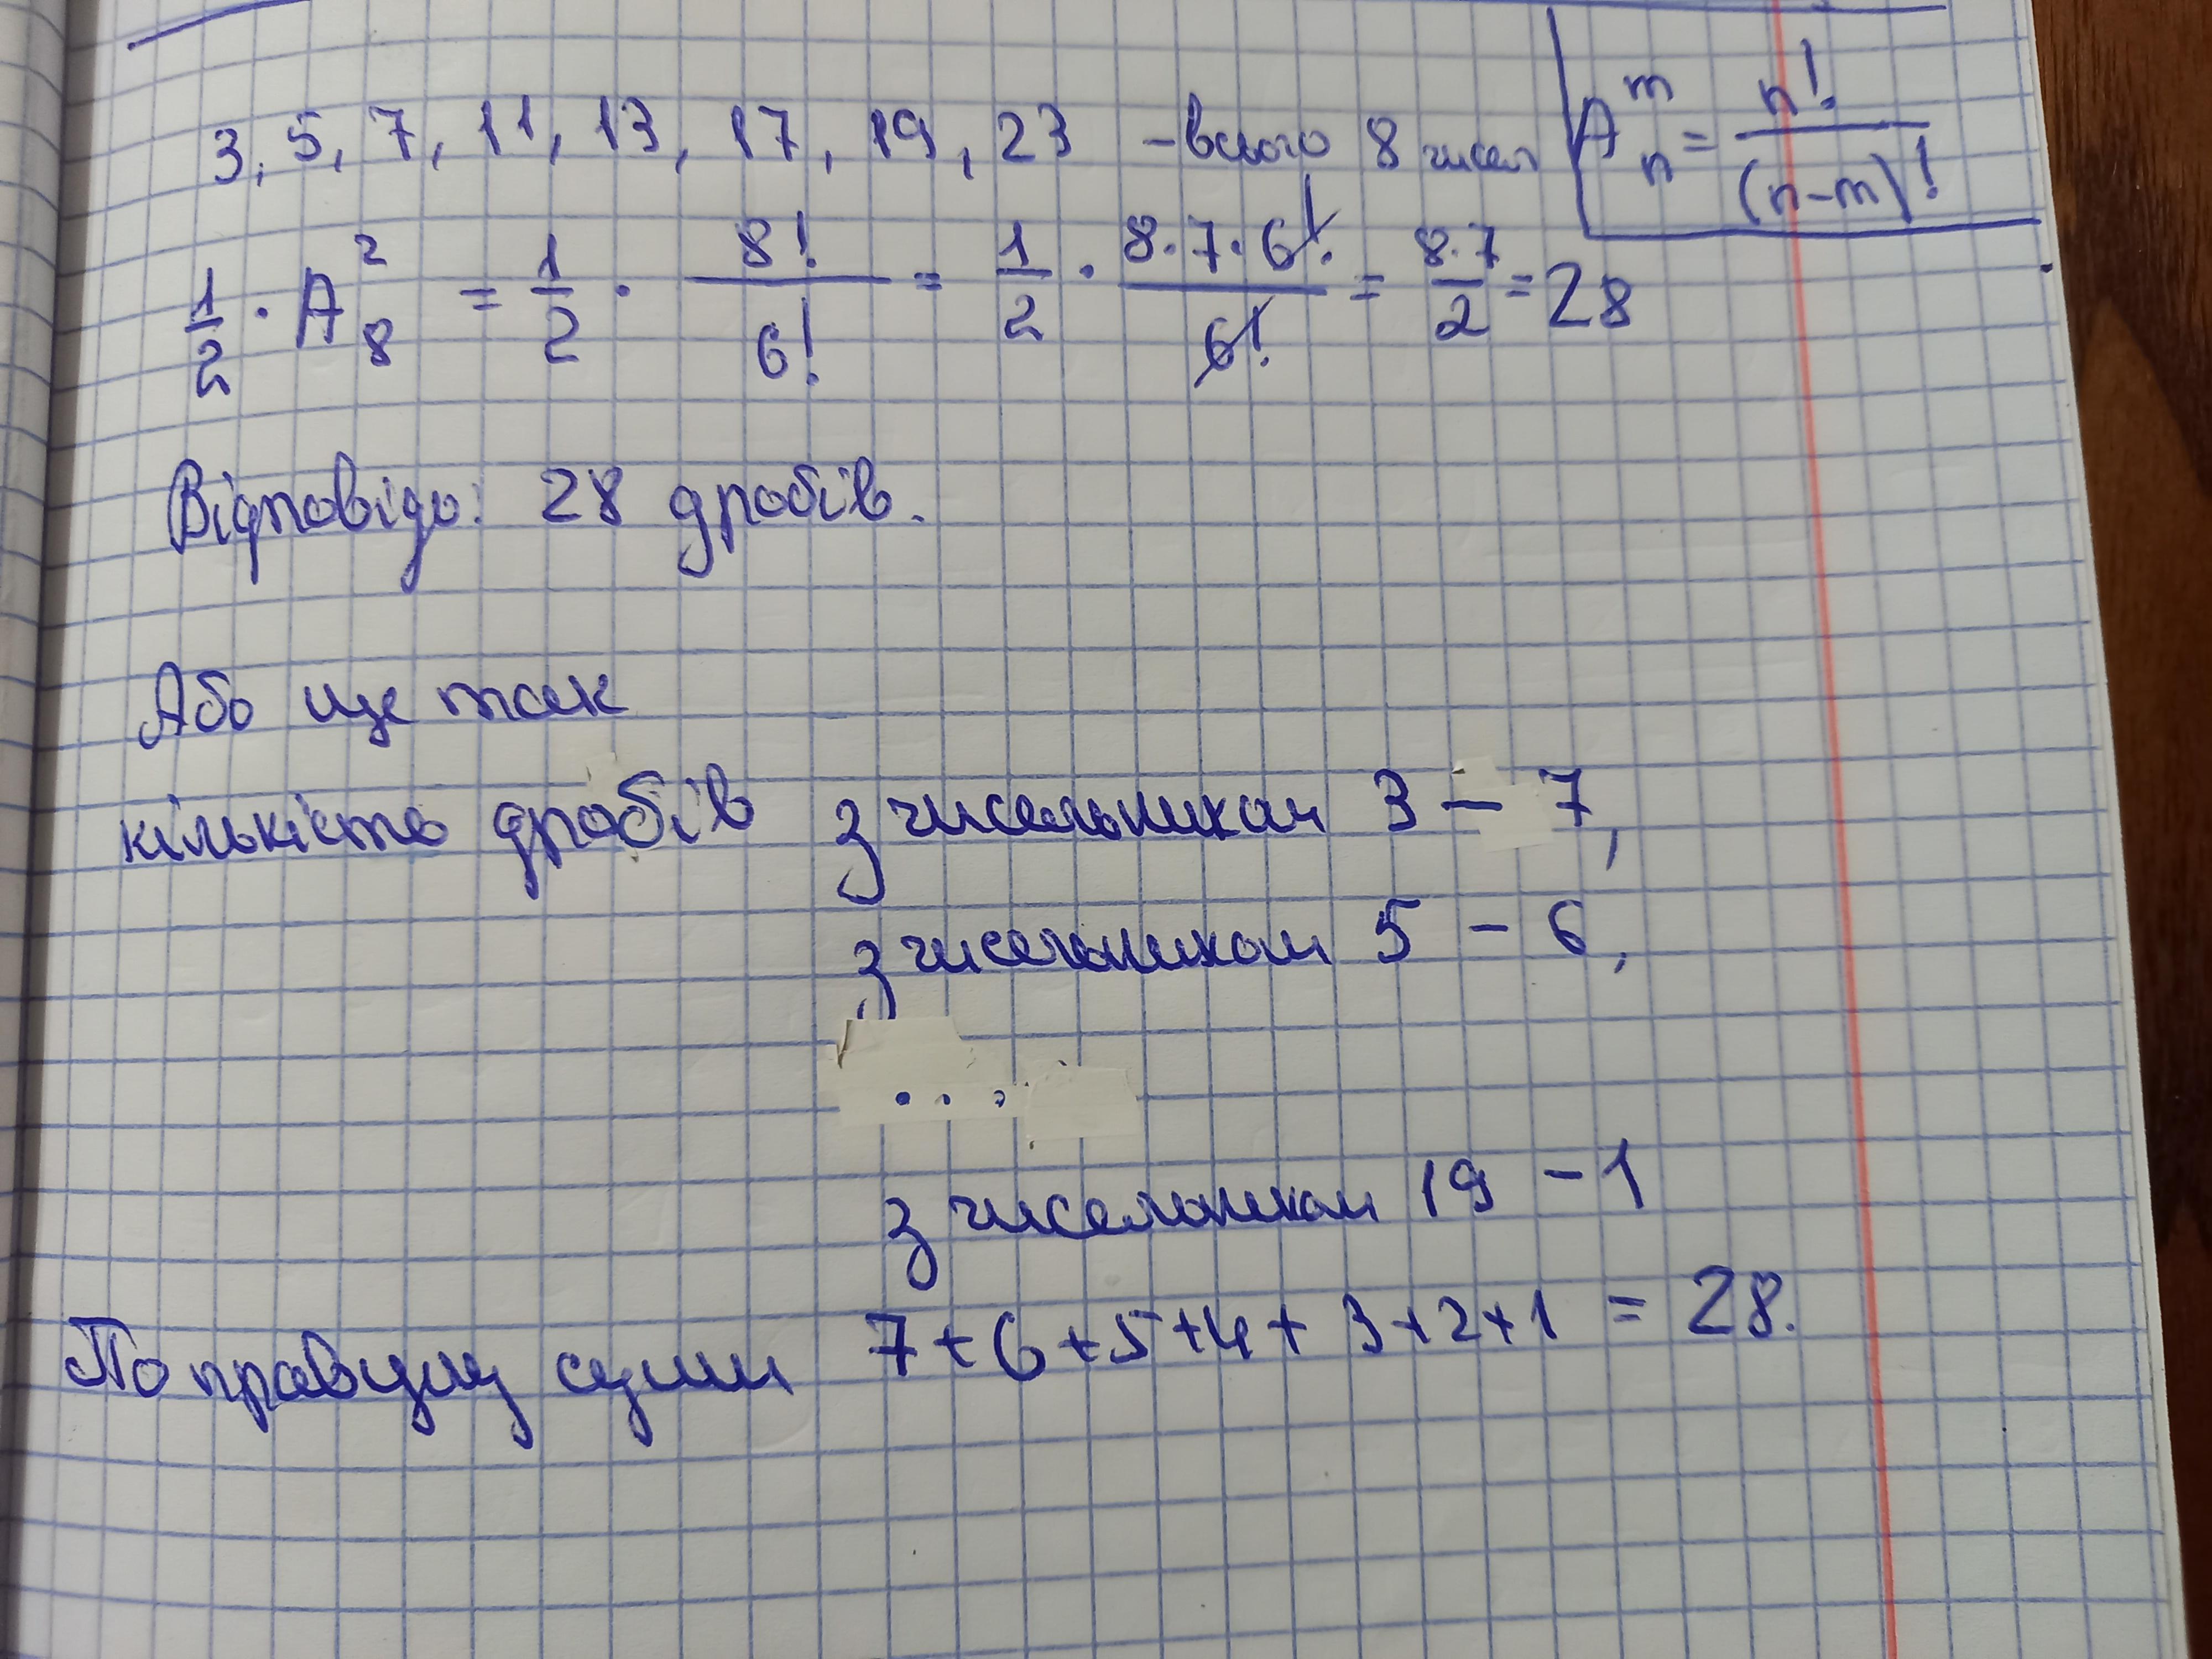 3, 5, 7, 11, 13, 17, 19, 23 – всього 8 чисел
A_n^m = n!/(n-m)!
1/2 · A_8^2 = 1/2 · 8!/6! = 1/2 · 8·7·6!/6! = 8·7/2 = 28
Відповідь: 28 дробів.
Або ще так
кількість дробів з чисельником 3 – 7,
з чисельником 5 – 6,
...
з чисельником 19 – 1
По правилу суми 7+6+5+4+3+2+1 = 28.